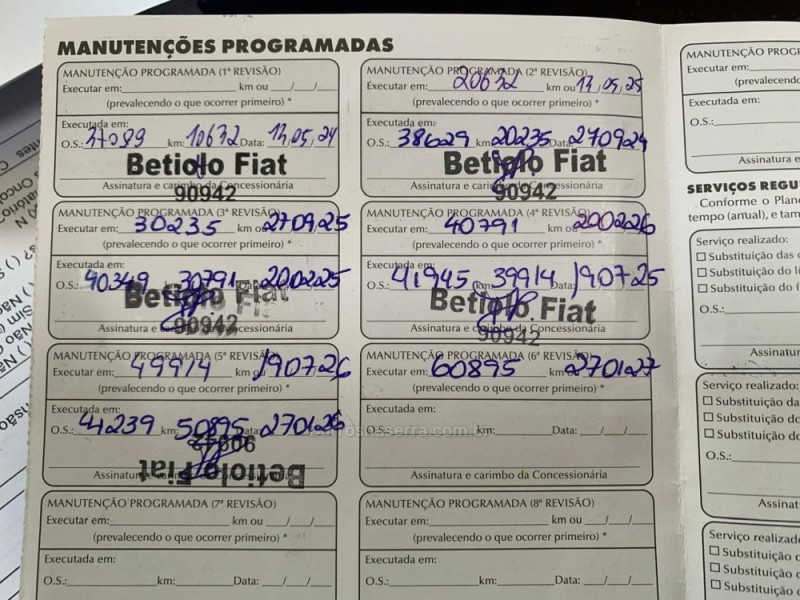 MANUTENÇÕES PROGRAMADAS
MANUTENÇÃO PROGRAMADA (1ª REVISÃO)
Executar em: km ou __/__/__
(prevalecendo o que ocorrer primeiro) *
Executada em:
O.S.: 37089 km: 10632 Data: 13,05,24
Betiollo Fiat
Assinatura e carimbo da Concessionária
90942
MANUTENÇÃO PROGRAMADA (2ª REVISÃO)
Executar em: 20632 km ou 13,05,25
(prevalecendo o que ocorrer primeiro) *
Executada em:
O.S.: 38629 km: 20235 Data: 270924
Betiolo Fiat
Assinatura e carimbo da Concessionária
90942
MANUTENÇÃO PROGRAMADA (3ª REVISÃO)
Executar em: 30235 km ou 2709,25
(prevalecendo o que ocorrer primeiro) *
Executada em:
O.S.: 40349 km: 30791 Data: 200225
Betiolo Fiat
Assinatura e carimbo da Concessionária
90942
MANUTENÇÃO PROGRAMADA (4ª REVISÃO)
Executar em: 40791 km ou 200226
(prevalecendo o que ocorrer primeiro) *
Executada em:
O.S.: 41945 km: 39914 Data: 190725
Betiolo Fiat
Assinatura e carimbo da Concessionária
90942
MANUTENÇÃO PROGRAMADA (5ª REVISÃO)
Executar em: 49914 km ou 190726
(prevalecendo o que ocorrer primeiro) *
Executada em:
O.S.: 44239 km: 50895 Data: 270126
90942
Assinatura
Betiolo Fiat
MANUTENÇÃO PROGRAMADA (6ª REVISÃO)
Executar em: 60895 km ou 270127
(prevalecendo o que ocorrer primeiro) *
Executada em:
O.S.: km: Data: __/__/__
Assinatura e carimbo da Concessionária
MANUTENÇÃO PROGRAMADA (7ª REVISÃO)
Executar em: km ou __/__/__
(prevalecendo o que ocorrer primeiro) *
Executada em:
O.S.: km: Data: __/__/__
MANUTENÇÃO PROGRAMADA (8ª REVISÃO)
Executar em: km ou __/__/__
(prevalecendo o que ocorrer primeiro) *
Executada em:
O.S.: km: Data: __/__/__
MANUTENÇÃO PROGR
Executar em:
(prevalecend
Executada em:
O.S.:
Assinatura e
SERVIÇOS REGU
Conforme o Plan
tempo (anual), e tam
Serviço realizado:
Substituição das
Substituição do lí
Substituição do f
O.S.:
Assinatu
Serviço realizado:
Substituição da
Substituição do
Substituição do
O.S.:
Assinat
Serviço realizado
Substituição
Substituição d
Substituição d